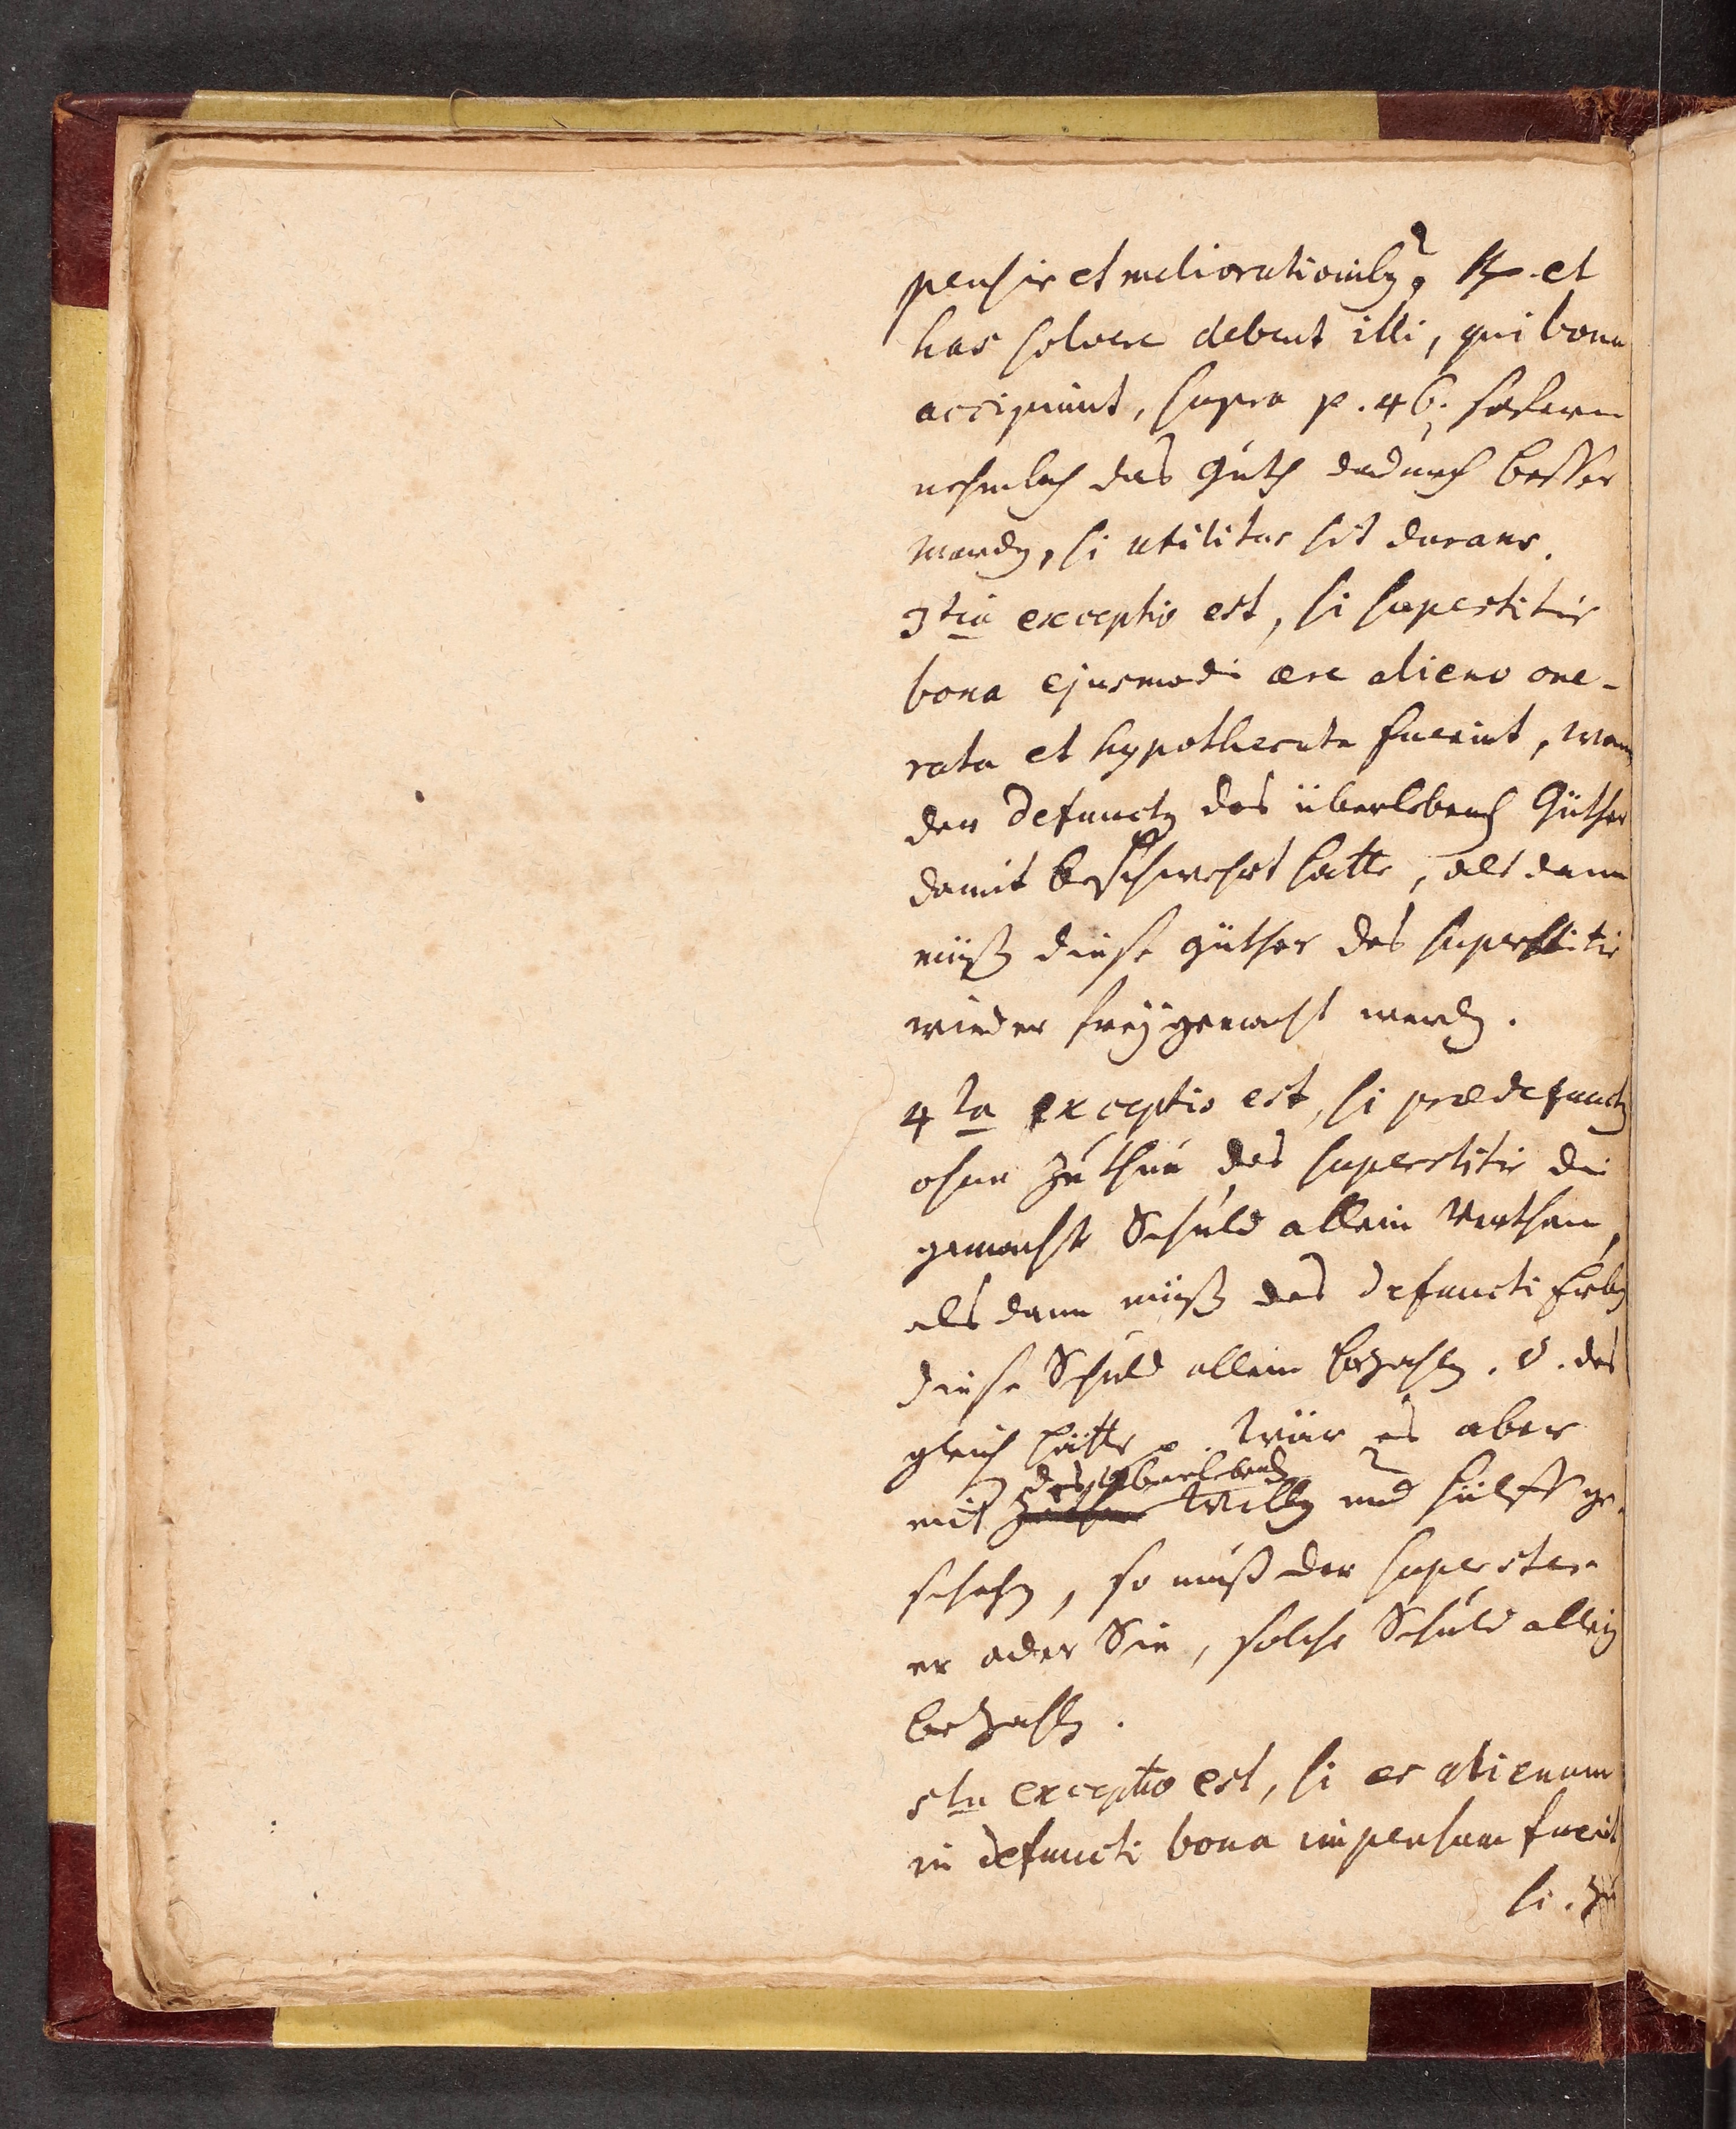 pensis et meliorationibꝫ? ℟. et
has solvere debent illi, qui bona
accipiunt, supra p. 46. sofern
nehmlich das Guth dadurch besser
worden, si utilitas sit durans.
3tia exceptio est, si superstitis
bona ejusmodi ære alieno one-
rata et hypothecata fuerint, wann
der Defunctꝫ des überlebend Güther
damit beschwehrt hatte, als dann
müß diese güther des superstitis
wieder frey gemacht werden.
4ta exceptio est, si prædefunctꝫ
ohne Zuthun des superstitis die
gemachte Schuld allein verthan,
als dann müß des defuncti Erben
diese Schuld allein bezahlen. d. des
gleich hätte p. Wär es aber
des überlebend
mit Willen und hülff ge-
schehen, so muß der superstes
er oder Sie, solche Schuld allein
bezahlen.
5ta exceptio est, si æs alienum
in defuncti bona impensum fuerit
si. zu